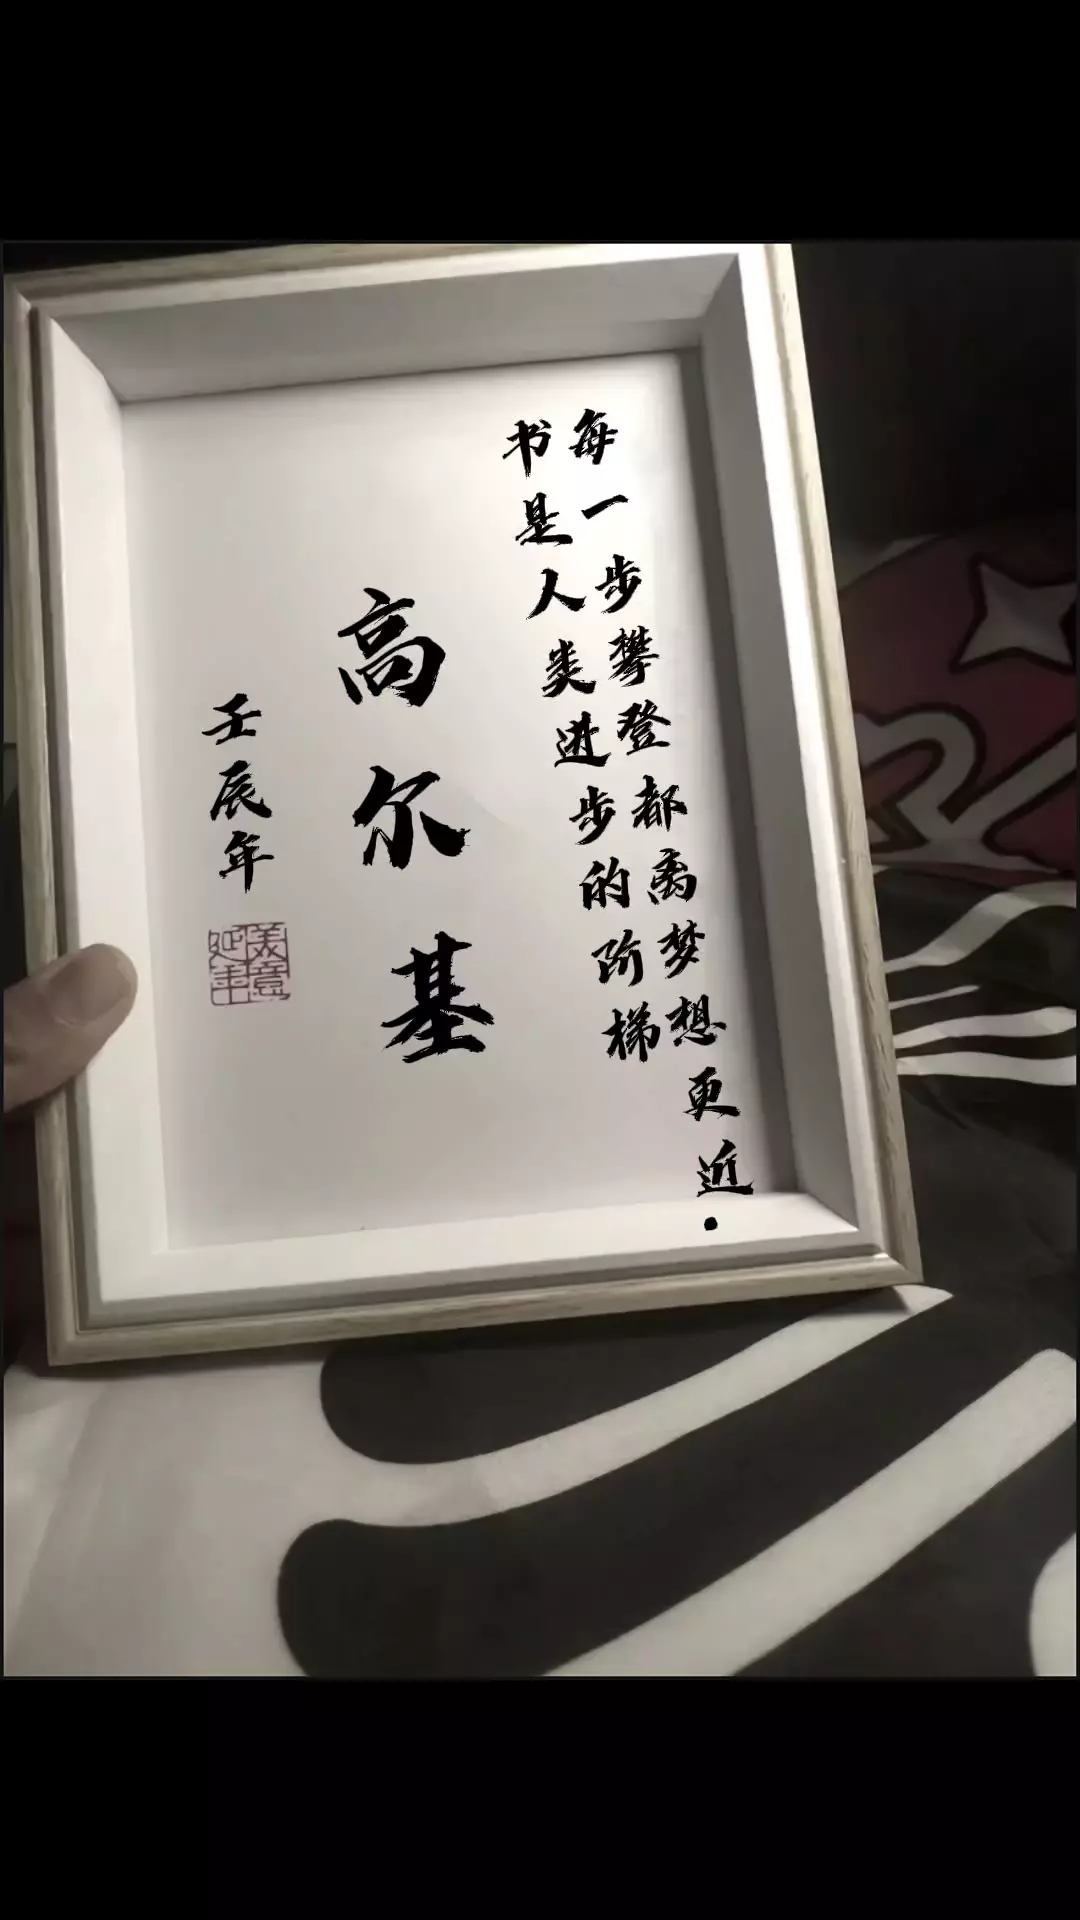 每一步攀登都离梦想更近.
书是人类进步的阶梯
高尔基
壬辰年
美意
延年